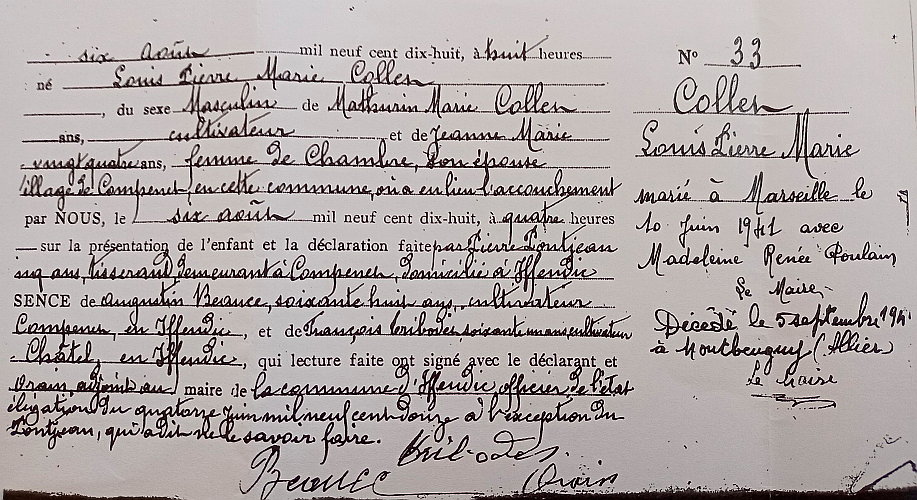 six août mil neuf cent dix-huit, à huit heures
né Louis Pierre Marie Collen
, du sexe Masculin de Mathurin Marie Collen
ans, cultivateur et de Jeanne Marie
vingt quatre ans, femme de Chambre, son épouse
illage de Compenen, en cette commune, où a eu lieu l'accouchement
par NOUS, le six août mil neuf cent dix-huit, à quatre heures
sur la présentation de l'enfant et la déclaration faite par Pierre Pontjean
inq ans, tisserand, demeurant à Compenen, domicilié à Iffendic
SENCE de Augustin Beauce, soixante huit ans, cultivateur
Compenen, en Iffendic, et de François soixante un ans, cultivateur
Châtel, en Iffendic, qui lecture faite ont signé avec le déclarant et
Orain, adjoint au maire de la commune d'Iffendic, officier de l'état
éligation du quatorze juin mil neuf cent douze à l'exception du
Pontjean, qui a dit ne le savoir faire.
Beauce Orain
N° 33
Collen
Louis Pierre Marie
marié à Marseille le
10 Juin 1941 avec
Madeleine Renée Poulain
Le Maire
Décédé le 5 septembre 194
à Montbeugny (Allier)
Le Maire